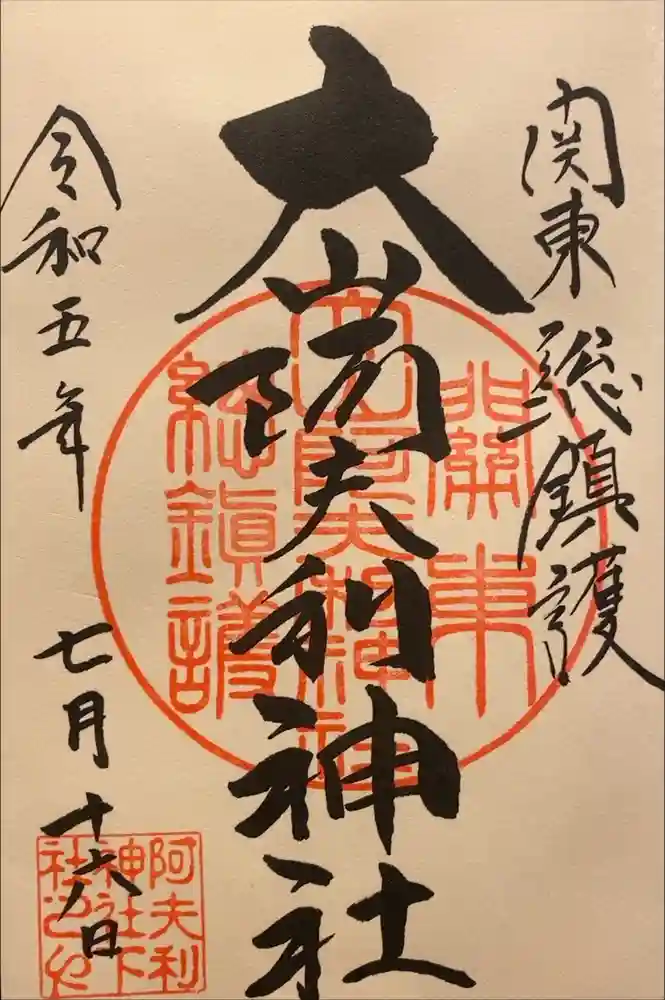 関東総鎮護
大山阿夫利神社
令和五年
七月十六日
關東
大山阿夫利神社
総鎮護
阿夫利
神社下
社